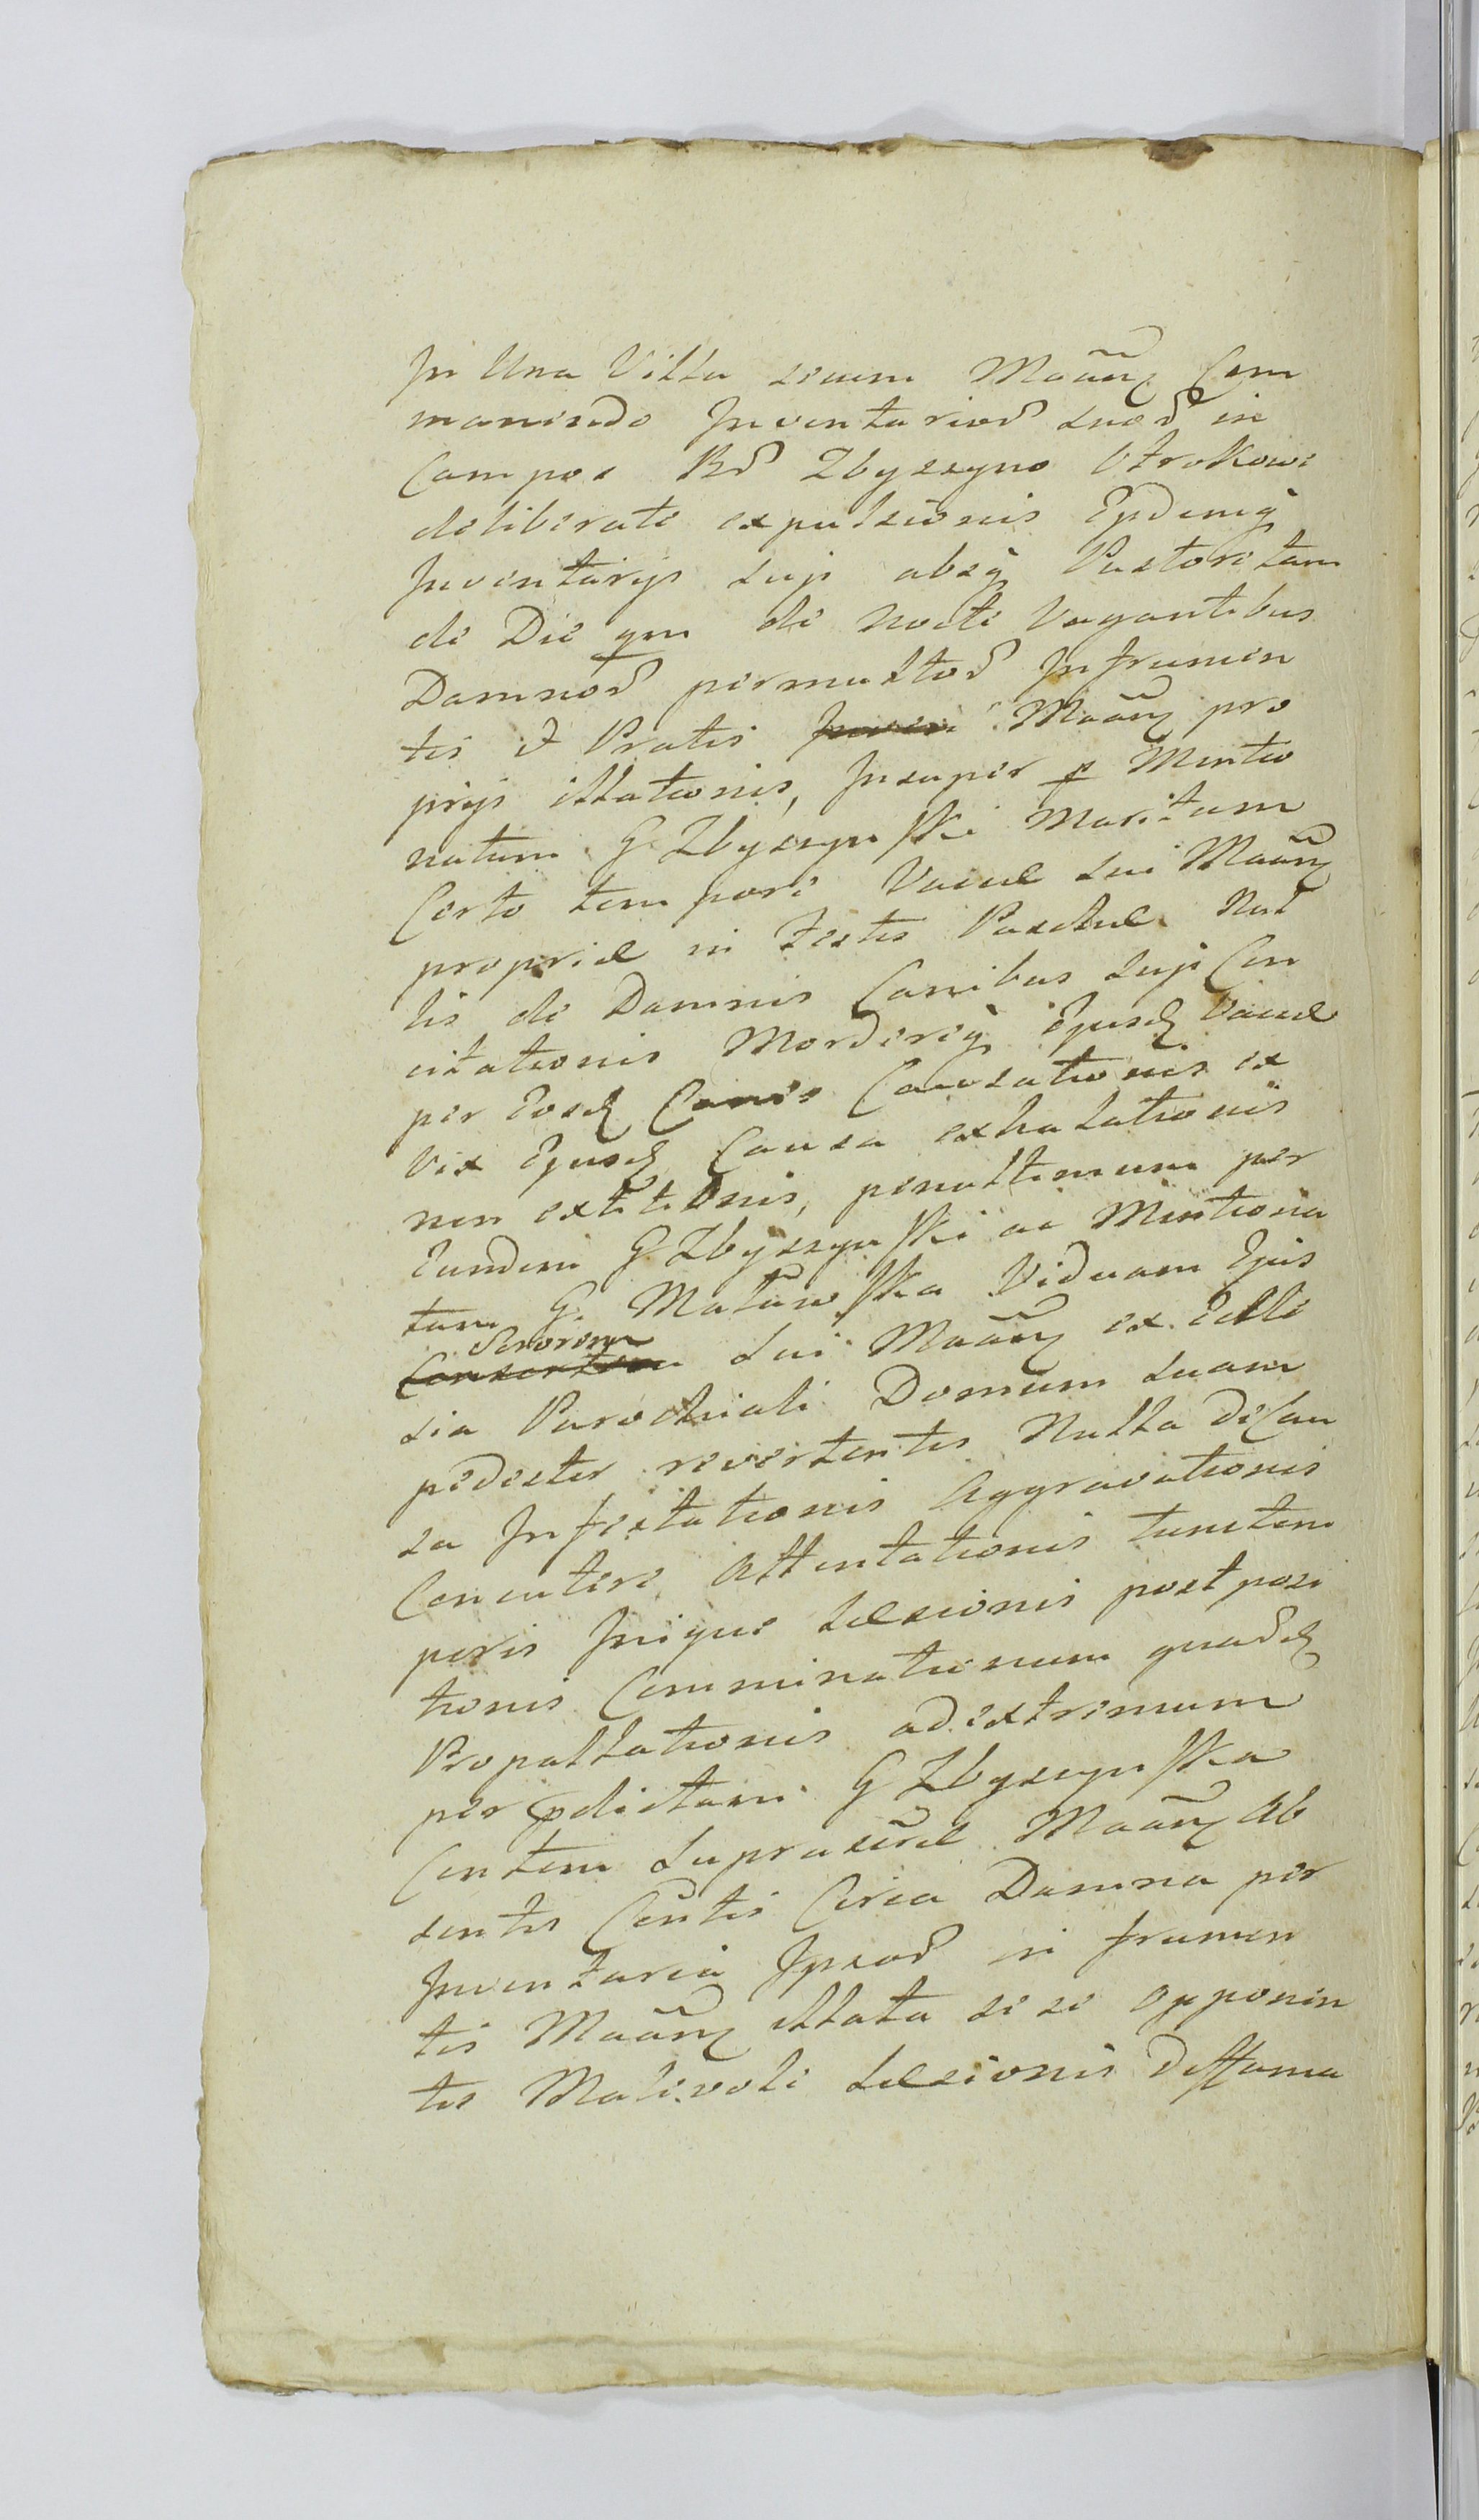 In Una Villa secum Maãnq Com
manendo Inventariorũ suorũ in
Campos Bõ Zbyszyno Utrokowe
deliberate expulsionis Ejsdemq
Inventarijs suji absq Pastoritam
de Die qm de Nocte Vagantibus
Damnorũ permultorũ In frumen
tis et Pratis Maãnq pro
prijs illationis, Insuper p Mentio
natum G Zbyszynski Maritum
Certo tempore Vaccae sui Maãnq
propriae in Festis Paschae Nul
lis de Damnis Canibus suji Con
citationis Morderiq Ejusdq Vaccae
per Eosdq Canes Causationis ex
Vix Ejusdq Causa exhalationis
non extitionis, penultimum per
Eundem G Zbyszynski ac Mentiona
tam G. Matowska Viduam Ejus
Sororem
Consortem sui Maãnq ex Eccle
sia Parochiali Domum suam
pedester revertentis Nulla de Cau
sa Infestationis Aggravationis
Concutere Attentationis tunc tem
poris Inique Laesionis post posi
tionis Comminationum quasdq
Propallationis ad extremum
per pdictam G Zbyszynska
Contem Supra scrae Maãnq Ab
sentis Contis Circa Damna per
Inventaria Ipsorũ in frumen
tis Maãnq illata sese opponen
tis Malevole Laesionis Diffama